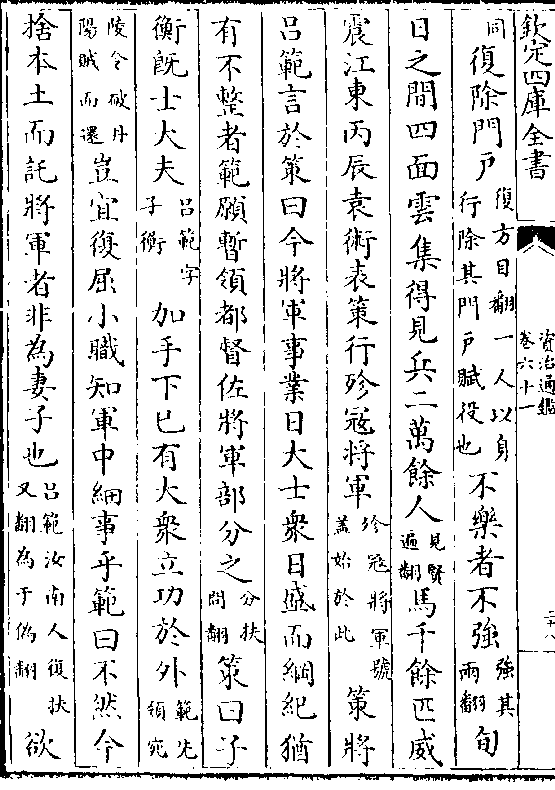 欽定四庫全書
資治通鑑
卷六十一
二十八
同復除門戶復方目翻一人以身行除其門戶賦役也不樂者不強強其兩翻旬
日之間四面雲集得見兵二萬餘人見賢遍翻馬千餘匹威
震江東丙辰袁術表策行殄寇將軍殄寇將軍號蓋始於此策將
呂範言於策曰今將軍事業日大士衆日盛而綱紀猶
有不整者範願暫領都督佐將軍部分之分扶問翻策曰子
衡旣士大夫呂範字子衡加手下已有大衆立功於外範先領宛
陵令破丹陽賊而還豈宜復屈小職知軍中細事乎範曰不然今
捨本土而託將軍者非為妻子也呂範汝南人復扶又翻為于偽翻欲